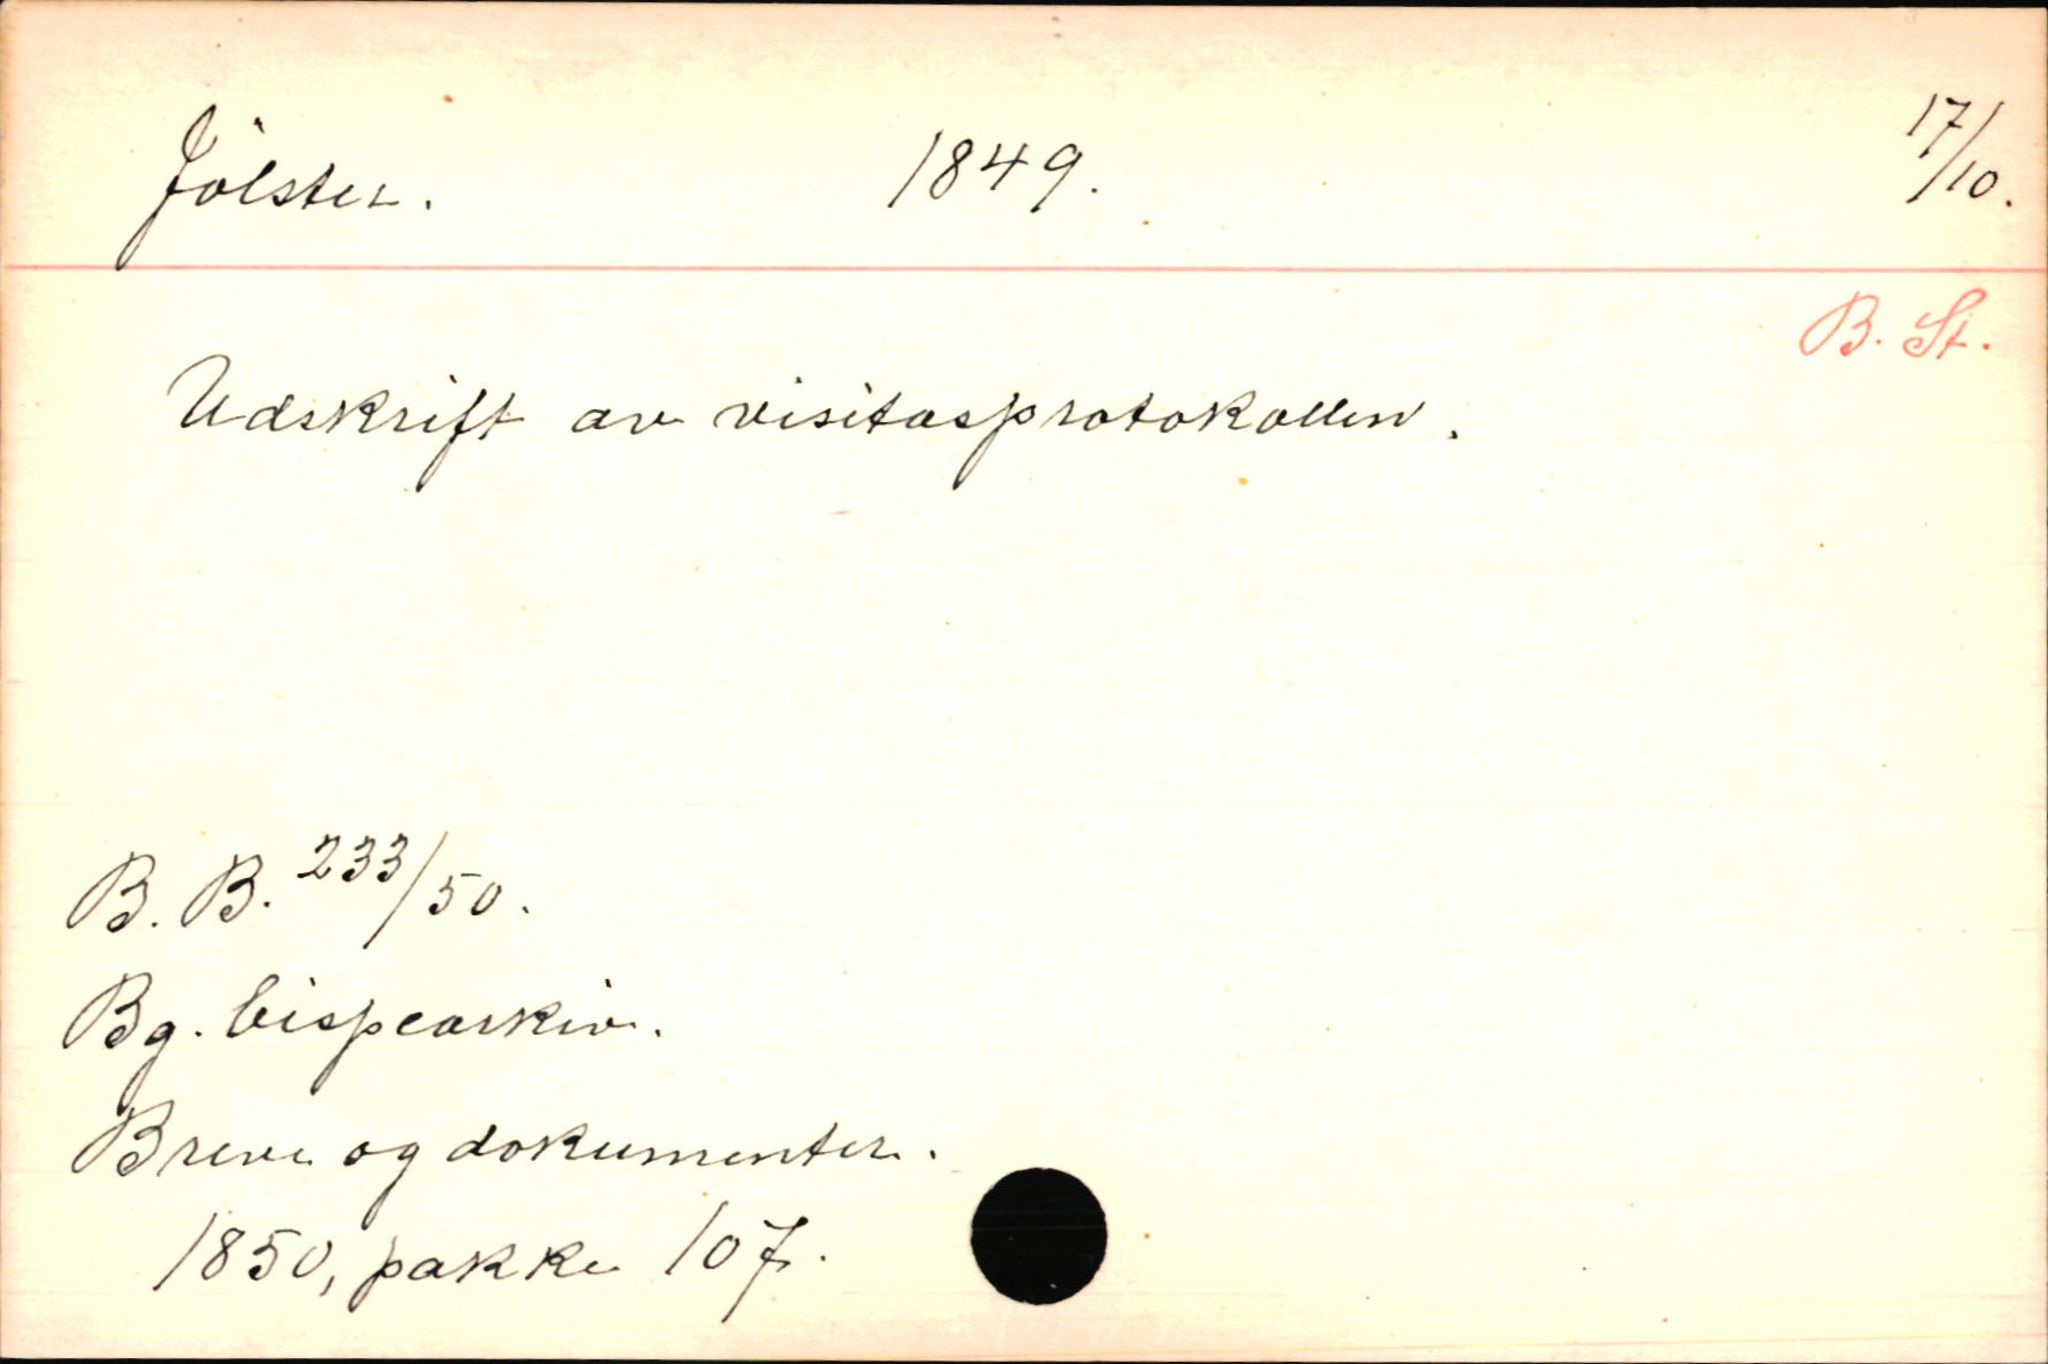 Jølster. 1849. 17/10.
B. St.
Udskrift av visitasprotokollen.
B. B. 233/50.
Bg. bispearkiv.
Breve og dokumenter.
1850, pakke 107.